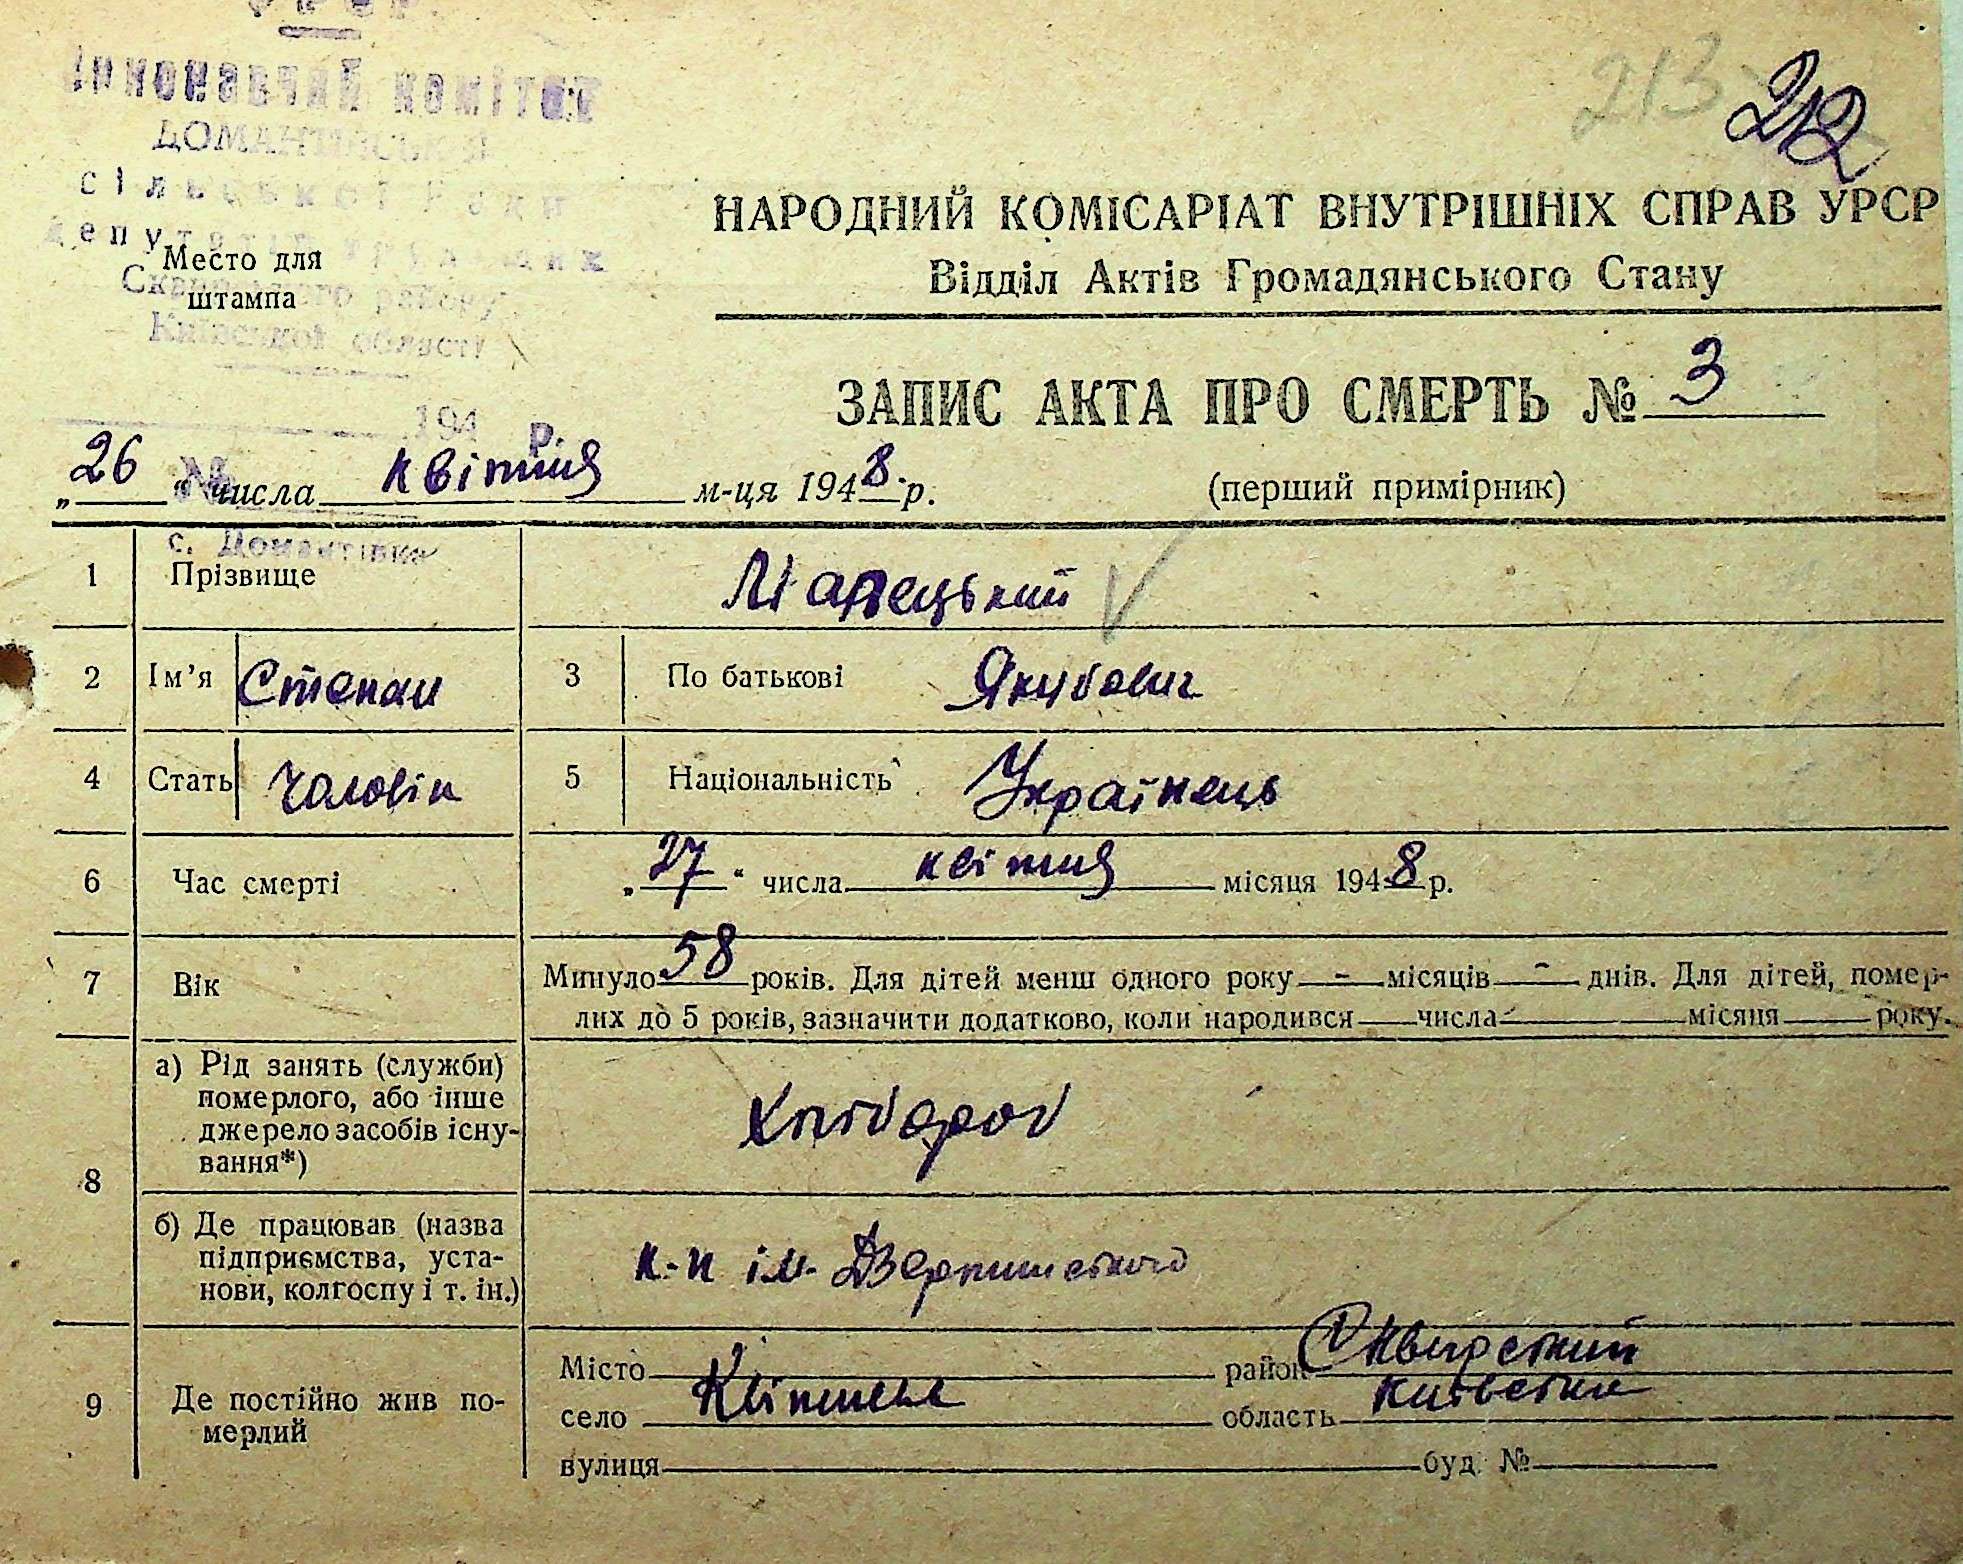 УРСР.
Виконавчий комітет
ДОМАНТІВСЬКОЇ
сільської Ради
депутатів трудящих
Сквирського району
Київської області
194 р.
№
с. Домантівка
213
212
Место для
штампа
НАРОДНИЙ КОМІСАРІАТ ВНУТРІШНІХ СПРАВ УРСР
Відділ Актів Громадянського Стану
ЗАПИС АКТА ПРО СМЕРТЬ № 3
„26“ числа квітня м-ця 1948 р.
(перший примірник)
1 Прізвище
2 Ім’я Степан 3 По батькові Якубович
4 Стать Чоловік 5 Національність Українець
6 Час смерті „27“ числа квітня місяця 1948 р.
7 Вік Минуло 58 років. Для дітей менш одного року - місяців - днів. Для дітей, помер-
лих до 5 років, зазначити додатково, коли народився числа місяця року.
8 а) Рід занять (служби)
померлого, або інше
джерело засобів існу-
вання*)
б) Де працював (назва
підприємства, уста-
нови, колгоспу і т. ін.)
к-п ім. Дзержинського
9 Де постійно жив по-
мерлий
Місто район Сквирский
село область Київська
вулиця буд. №